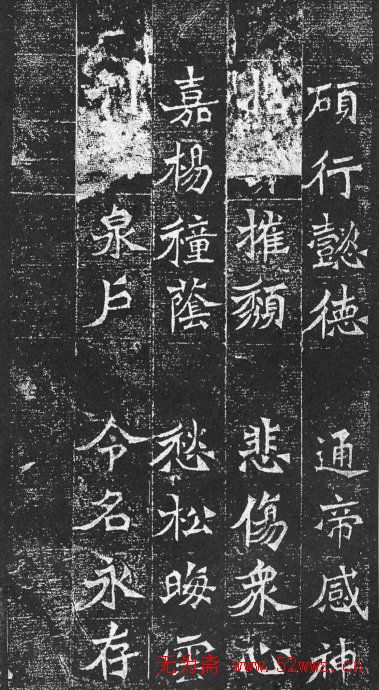 碩行懿德 通帝感神
摧頽 悲傷衆心
嘉楊穜蔭 愁松晦雲
泉戶 令名永存
无为斋 www.52wwz.cn